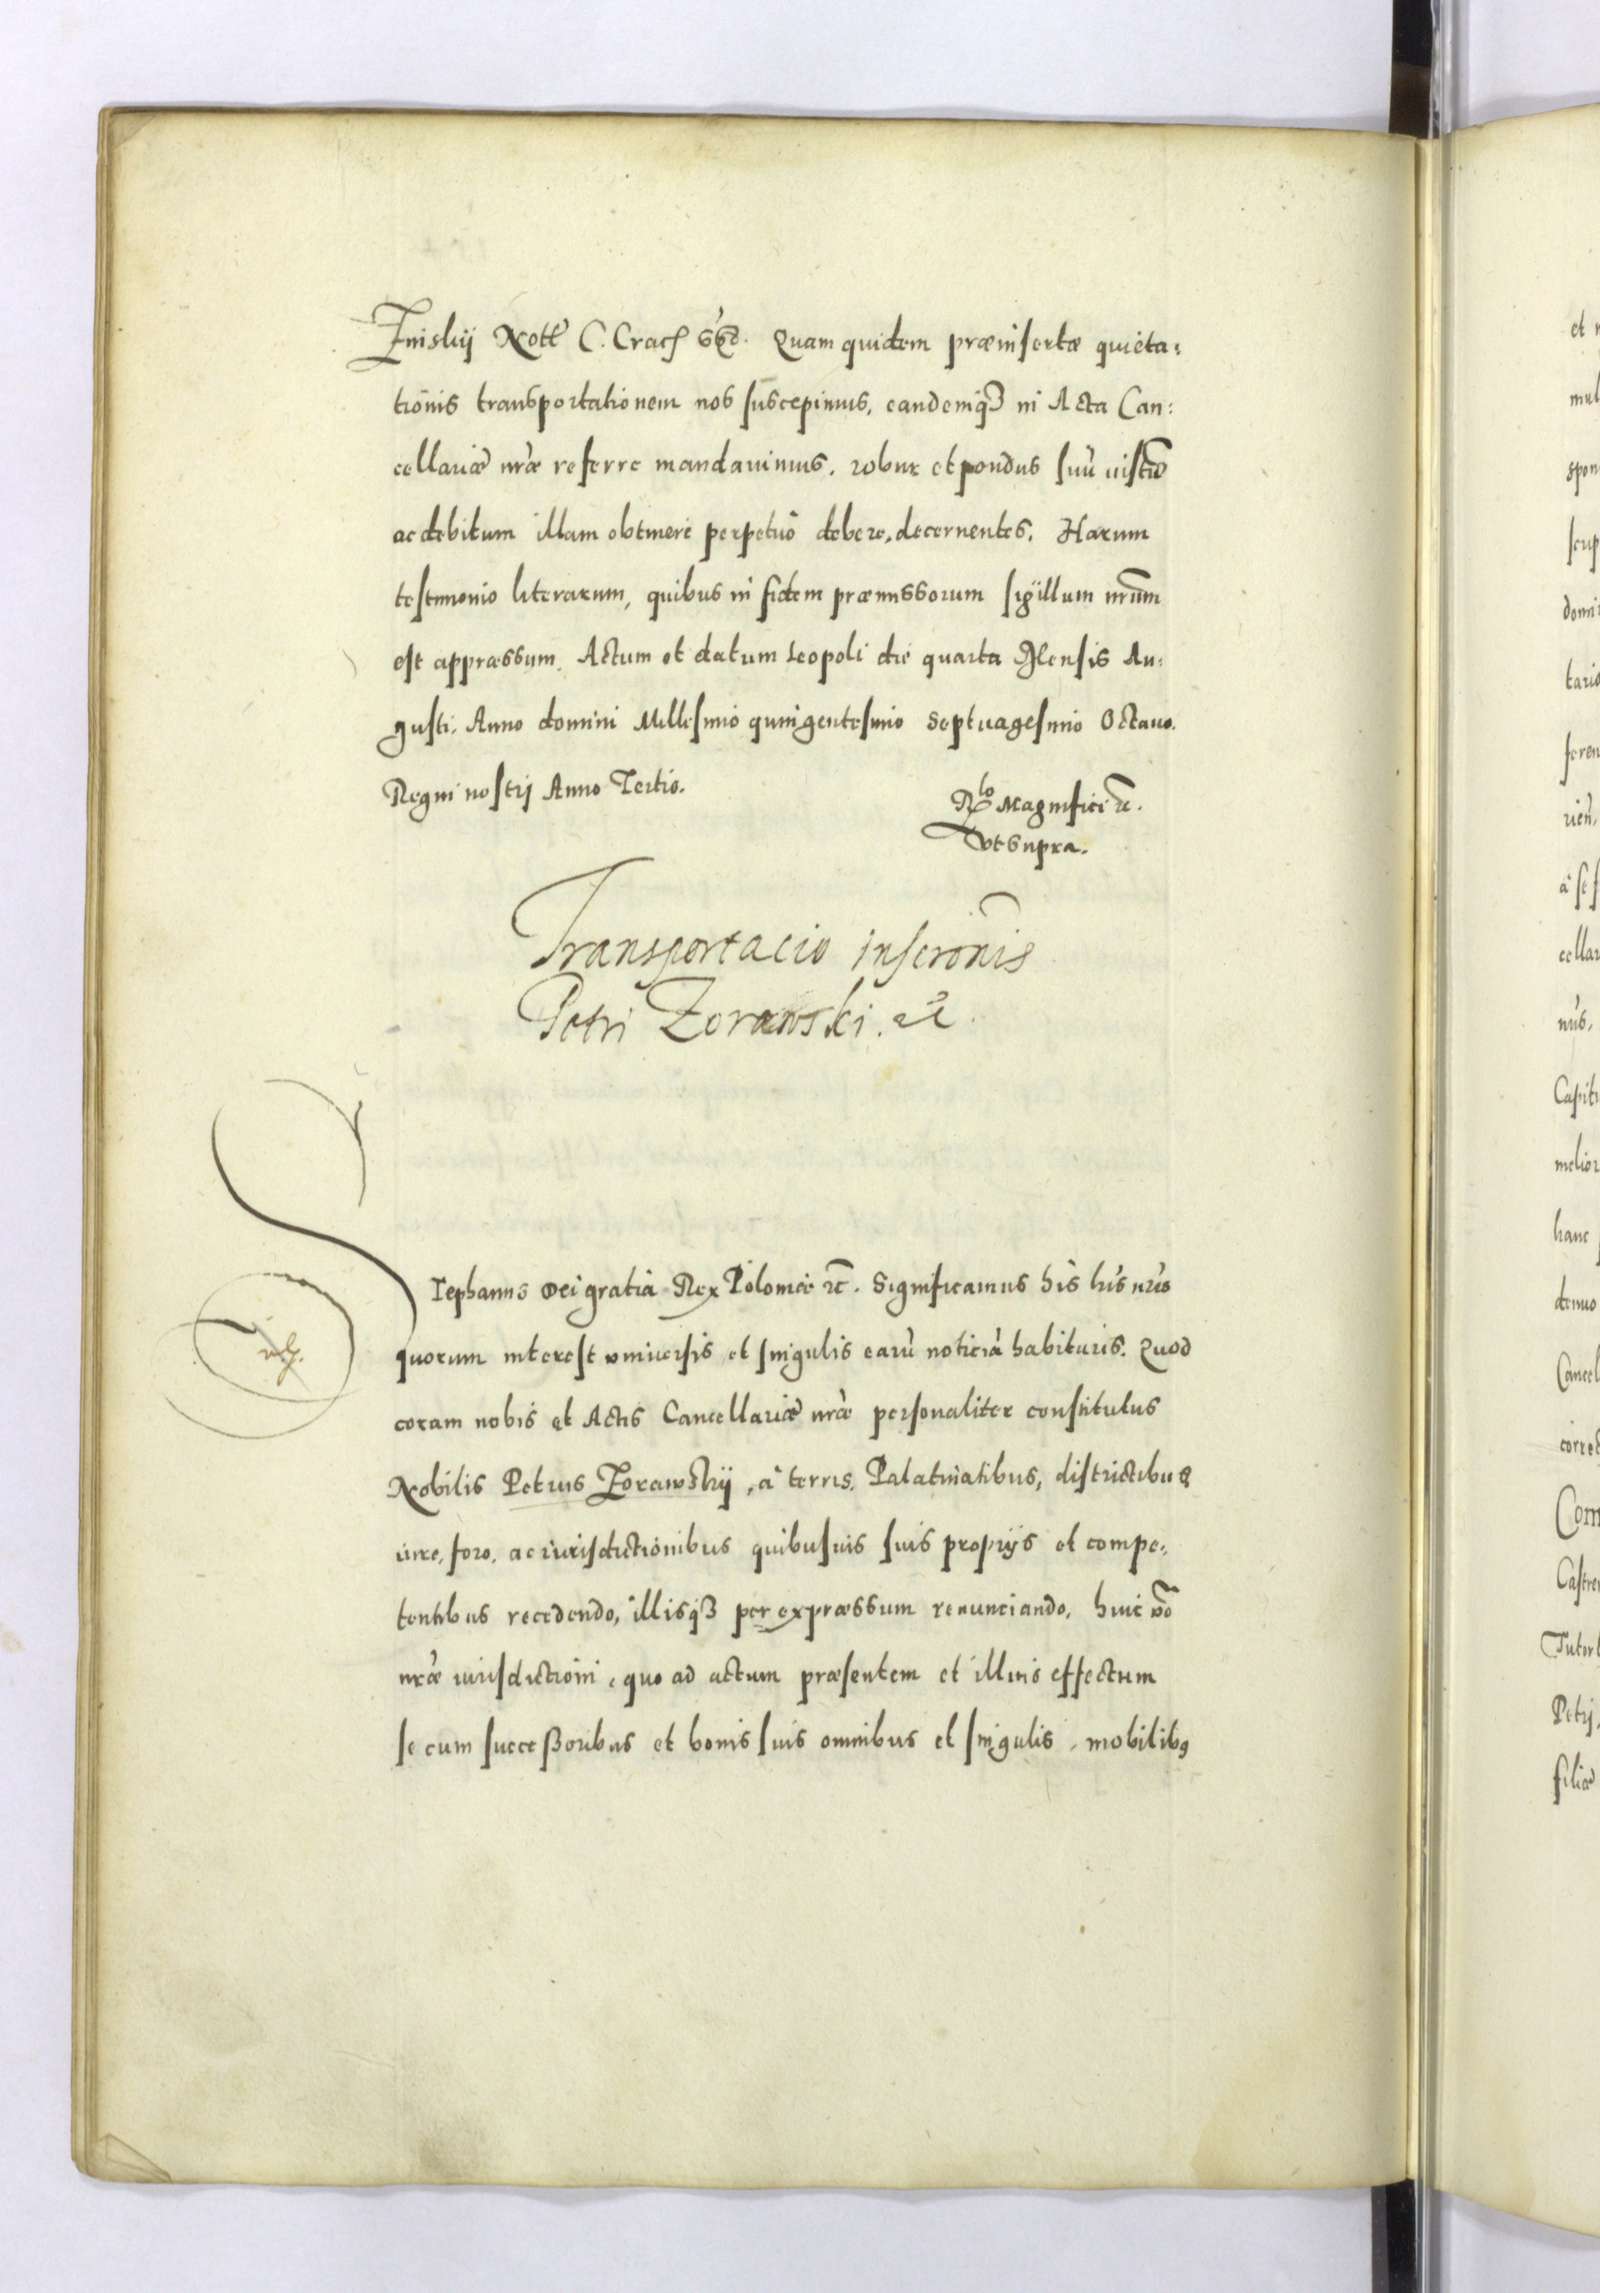 Zniskij Nott C. Crac. Quam quidem præinsertæ quieta:
tionis transportationem nos suscepimus, eandemq3 in Acta Can:
cellariæ nræ referre mandauimus. robur et pondus suũ iustũ
ac debitum illam obtinere perpetuo debere, decernentes. Harum
testimonio literarum, quibus in fidem præmissorum sigillum nrum
est appræssum. Actum et datum Leopoli die quarta Mensis Au:
gusti. Anno domini Millesimo quingentesimo Septuagesimo Octauo.
Regni nostrj Anno Tertio.
Rlo Magnifici etc.
Vt Supra.
Transportacio inscronis
Petri Zorawski. etc
Stephanus Dei gratia Rex Poloniæ etc. Significamus his lris nris
quorum interest vniuersis et singulis earũ noticiã habituris. Quod
coram nobis et Actis Cancellariæ nræ personaliter constitutus
Nobilis Petrus Zorawskij, à terris, Palatinatibus, districtibus
iure, foro, ac iurisdictionibus quibusuis suis proprijs et compe:
tentibus recedendo, illisq3 per expræssum renunciando, huic vo
nræ iurisdictioni, quo ad actum præsentem et illius effectum
se cum successoribus et bonis suis omnibus et singulis, mobilibus
et
mul
spon
scup
domi
tario
feren
rien,
à se s
cellar
nus,
Capit
melior
hanc
denuo
Cancel
correc
Com
Castre
Tutor
Petrj,
filiæ